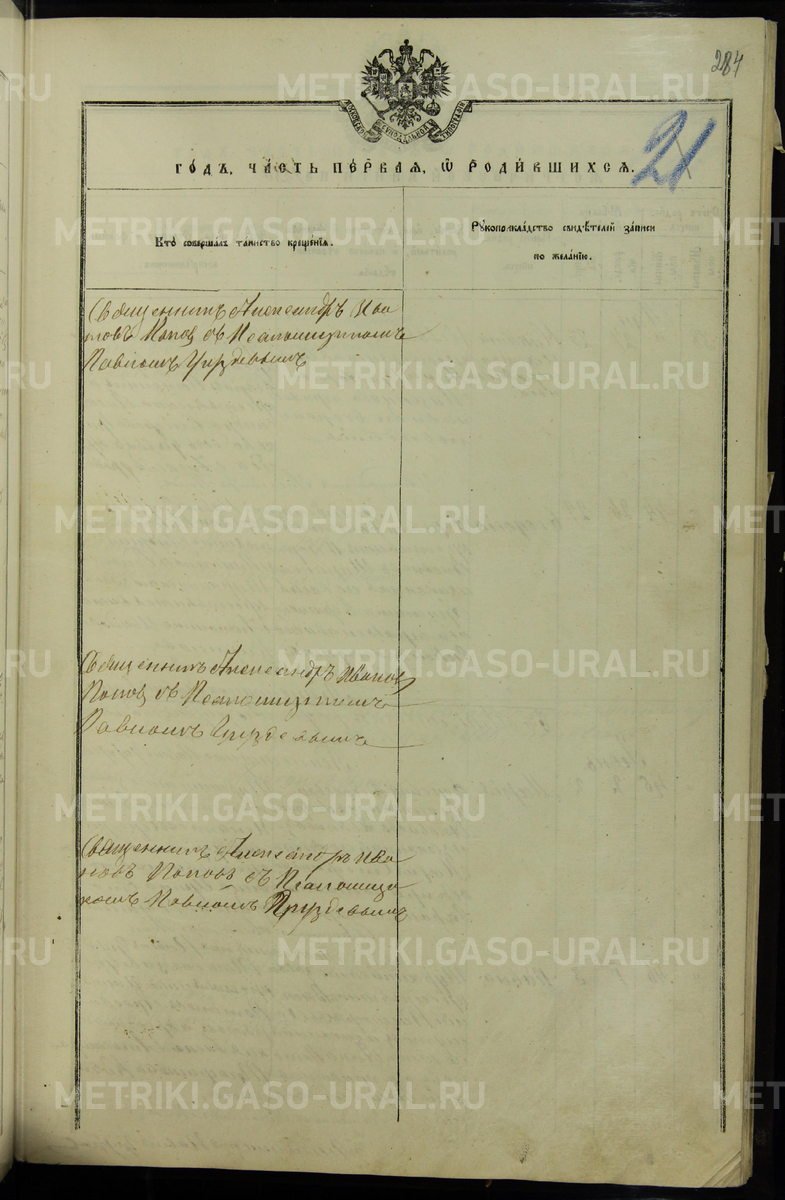 284
21
МОСКОВСКОЙ СѴНОДАЛЬНОЙ ТИПОГРАФІИ
ГОДЪ, ЧАСТЬ ПЕРВАЯ, Ѡ РОДИВШИХСЯ.
Кто совершалъ таинство крещенїя.
Рукоприкладство свидѣтелей записи
по желанїю.
Священникъ Александръ Ива
новъ Попов съ Псаломщикомъ
Павломъ Груздевымъ
Священникъ Александръ Иванов
Попов съ Псаломщикомъ
Павломъ Груздевымъ
Священникъ Александръ Ива
новъ Поповъ съ Псаломщи
комъ Павломъ Груздевымъ
METRIKI.GASO-URAL.RU